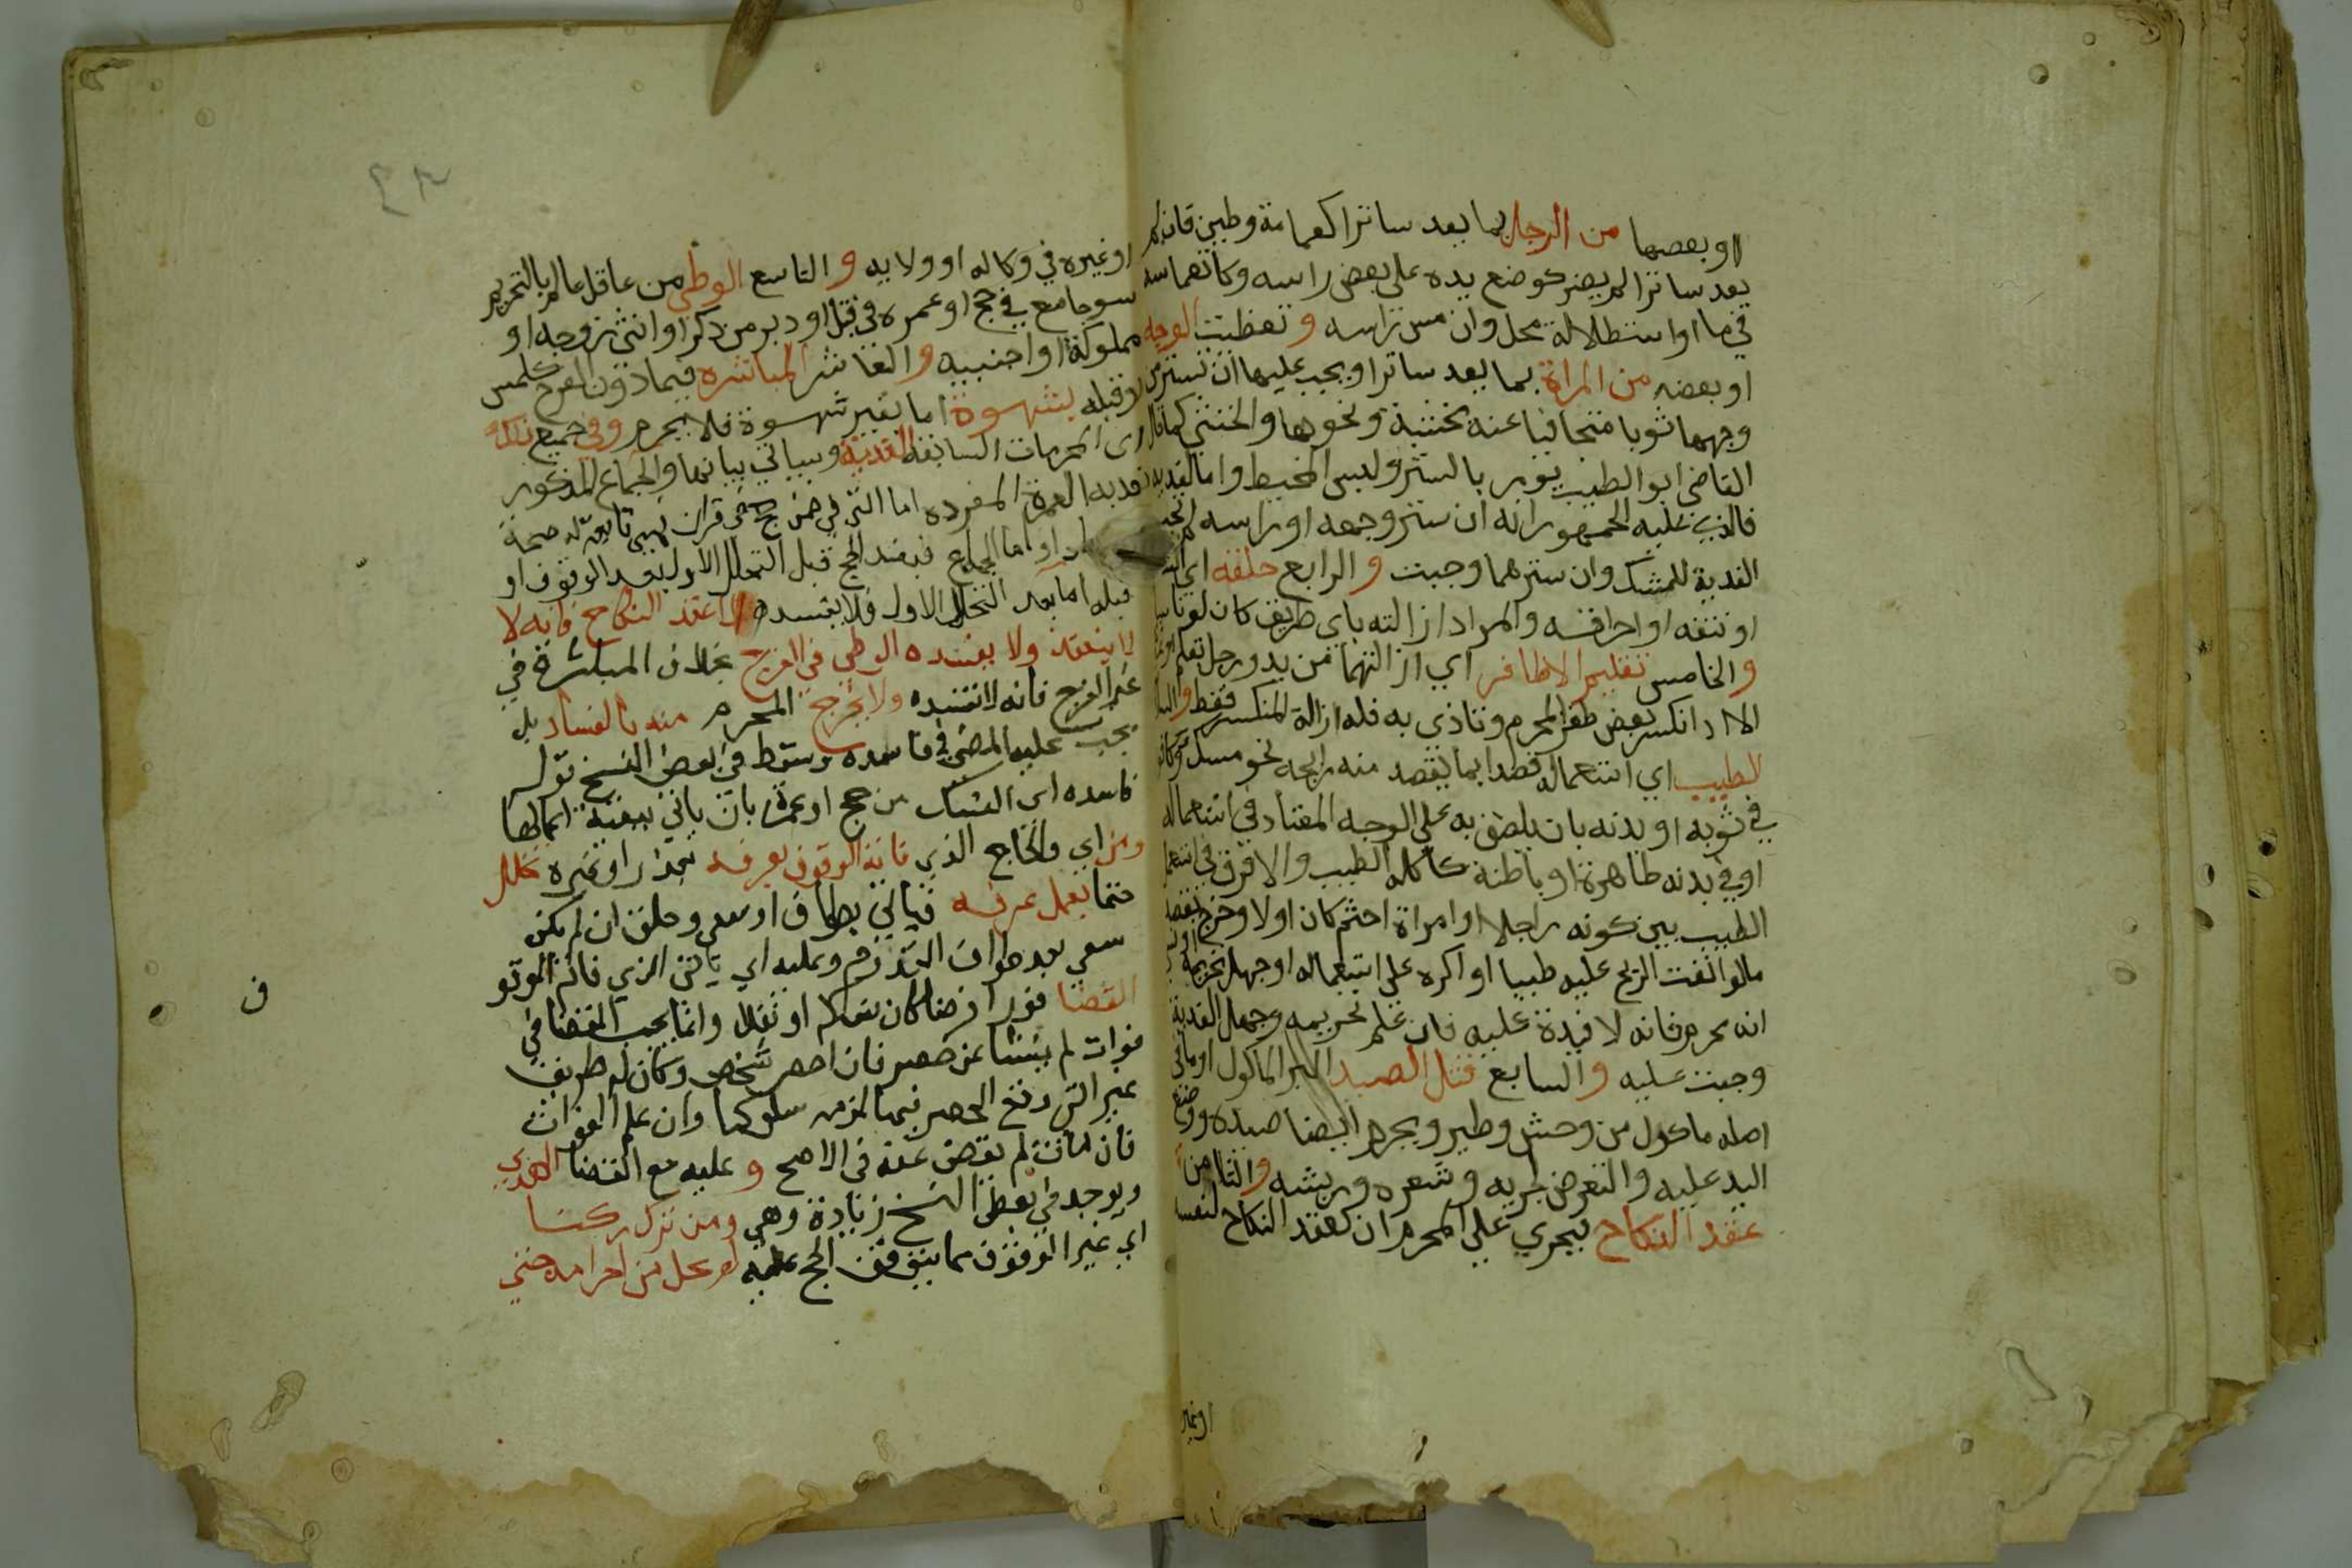 او بعضها من الرجل بما يعد ساترا كعمامة وطين فان لم
يعد ساترا لم يضر كوضع يده على بعض راسه وكانغماسه
في ما او استظلاله بمحمل وان مس راسه و تغطيت الوجه
او بعضه من المراة بما يعد ساترا ويجب عليها ان تستر من
وجهها ثوبا متجافيا عنه بخشبة ونحوها والخنثى كما قال
القاضي ابو الطيب يومر بالستر ولبس المخيط واما الفدية
فالذي عليه الجمهور انه ان ستر وجهه او راسه لم تجب
الفدية للشك وان سترهما وجبت و الرابع حلقه اي
او نتفه او احراقه والمراد ازالته باي طريق كان لو ناسيا
والخامس تقليم الاظافر اي ازالتها من يد ورجل تقليم
الا اذا انكسر بعض ظفر المحرم وتاذى به فله ازالة المنكسر فقط و
الطيب اي استعماله قصدا بما يقصد منه رايحه نحو مسك وكافور
في ثوبه او بدنه بان يلصق به على الوجه المعتاد في استعماله
او في بدنه ظاهرة او باطنة كاكله الطيب والا فرق في
الطيب بين كونه راجلا او امراة اخشم كان او لا وخرج بقصد
مالو القت الريح عليه طيبا او اكره على استعماله او جهل تحريمه او
انه محرم فانه لا فدية عليه فان علم تحريمه وجهل الفدية
وجبت عليه و السابع قتل الصيد البر الماكول او ما في
اصله ماكول من وحش وطير ويحرم ايضا صيده ووضع
اليد عليه والتعرض لجزيه وشعره وريشه و الثامن
عقد النكاح فيحرم على المحرم ان يعقد النكاح لنفسه
او غير
او غيره في وكاله او ولايه و التاسع الوطي من عاقل عالم بالتحريم
سوا جامع في حج او عمره في قبل او دبر من ذكر او انثى زوجه او
مملوكة او اجنبيه و العاشر المباشره فيما دون الفرج كلمس
او قبله بشهوة اما بغير شهوة فلا يحرم وفي جميع ذلك
اى المحرمات السابقة الفدية وسياتي بيانها والجماع المذكور
تفسد به العمرة المفرده اما التي في ضمن حج في قران فهي تابعة له صحة
واما الجماع فيفسد الحج قبل التحلل الاول بعد الوقوف او
قبله اما بعد التحلل الاول فلا يفسده الا عقد النكاح فانه لا
لا ينعقد ولا يفسده الا الوطي في الفرج بخلاف المباشرة في
غير الفرج فانه لا تفسده ولا يخرج المحرم منه بالفساد بل
يجب عليه المضي في فاسده وسقط في بعض النسخ قوله
فاسده اي النسك من حج او عمرة بان ياتي ببقية اعمالها
ومن اي والحاج الذي فاته الوقوف بعرفه بعذر او غيره تحلل
حتما بعمل عمرة فياتي بطواف او سعي وحلق ان لم يكن
سعى بعد طواف القدوم وعليه اي الذي فاته الوقو
القضا فورا فرضا كان نسكه او نفلا وانما يجب القضا في
فوات لم ينشا عن حصر فان احصر شخص وكان له طريق
غير التي وقع الحصر فيها لزمه سلوكها وان علم الفوات
فان مات لم يقض عنه في الاصح و عليه مع القضا الهدي
ويوجد في بعض النسخ زيادة وهي ومن ترك ركنا
اي غير الوقوف مما يتوقف الحج عليه لم يحل من احرامه حتى
ف